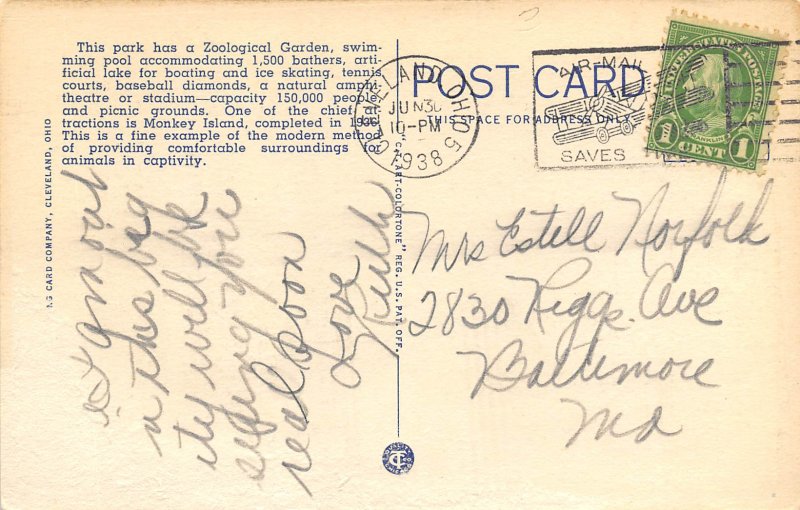 This park has a Zoological Garden, swim-
ming pool accommodating 1,500 bathers, arti-
ficial lake for boating and ice skating, tennis
courts, baseball diamonds, a natural amphi-
theatre or stadium—capacity 150,000 people
and picnic grounds. One of the chief at-
tractions is Monkey Island, completed in
This is a fine example of the modern method
of providing comfortable surroundings for
animals in captivity.
POST CARD
THIS SPACE FOR ADDRESS ONLY
CLEVELAND, OHIO 5
JUN 30
10-PM
1938
AIR-MAIL
SAVES
UNITED STATES POSTAGE
FRANKLIN
1 CENT 1
NG CARD COMPANY, CLEVELAND, OHIO
ART-COLORTONE" REG. U.S. PAT. OFF.
I am out
in this big
ity will be
seeing you
real soon
Love
Ruth
Mrs Estell Norfolk
2830 Riggs Ave
Baltimore
Md